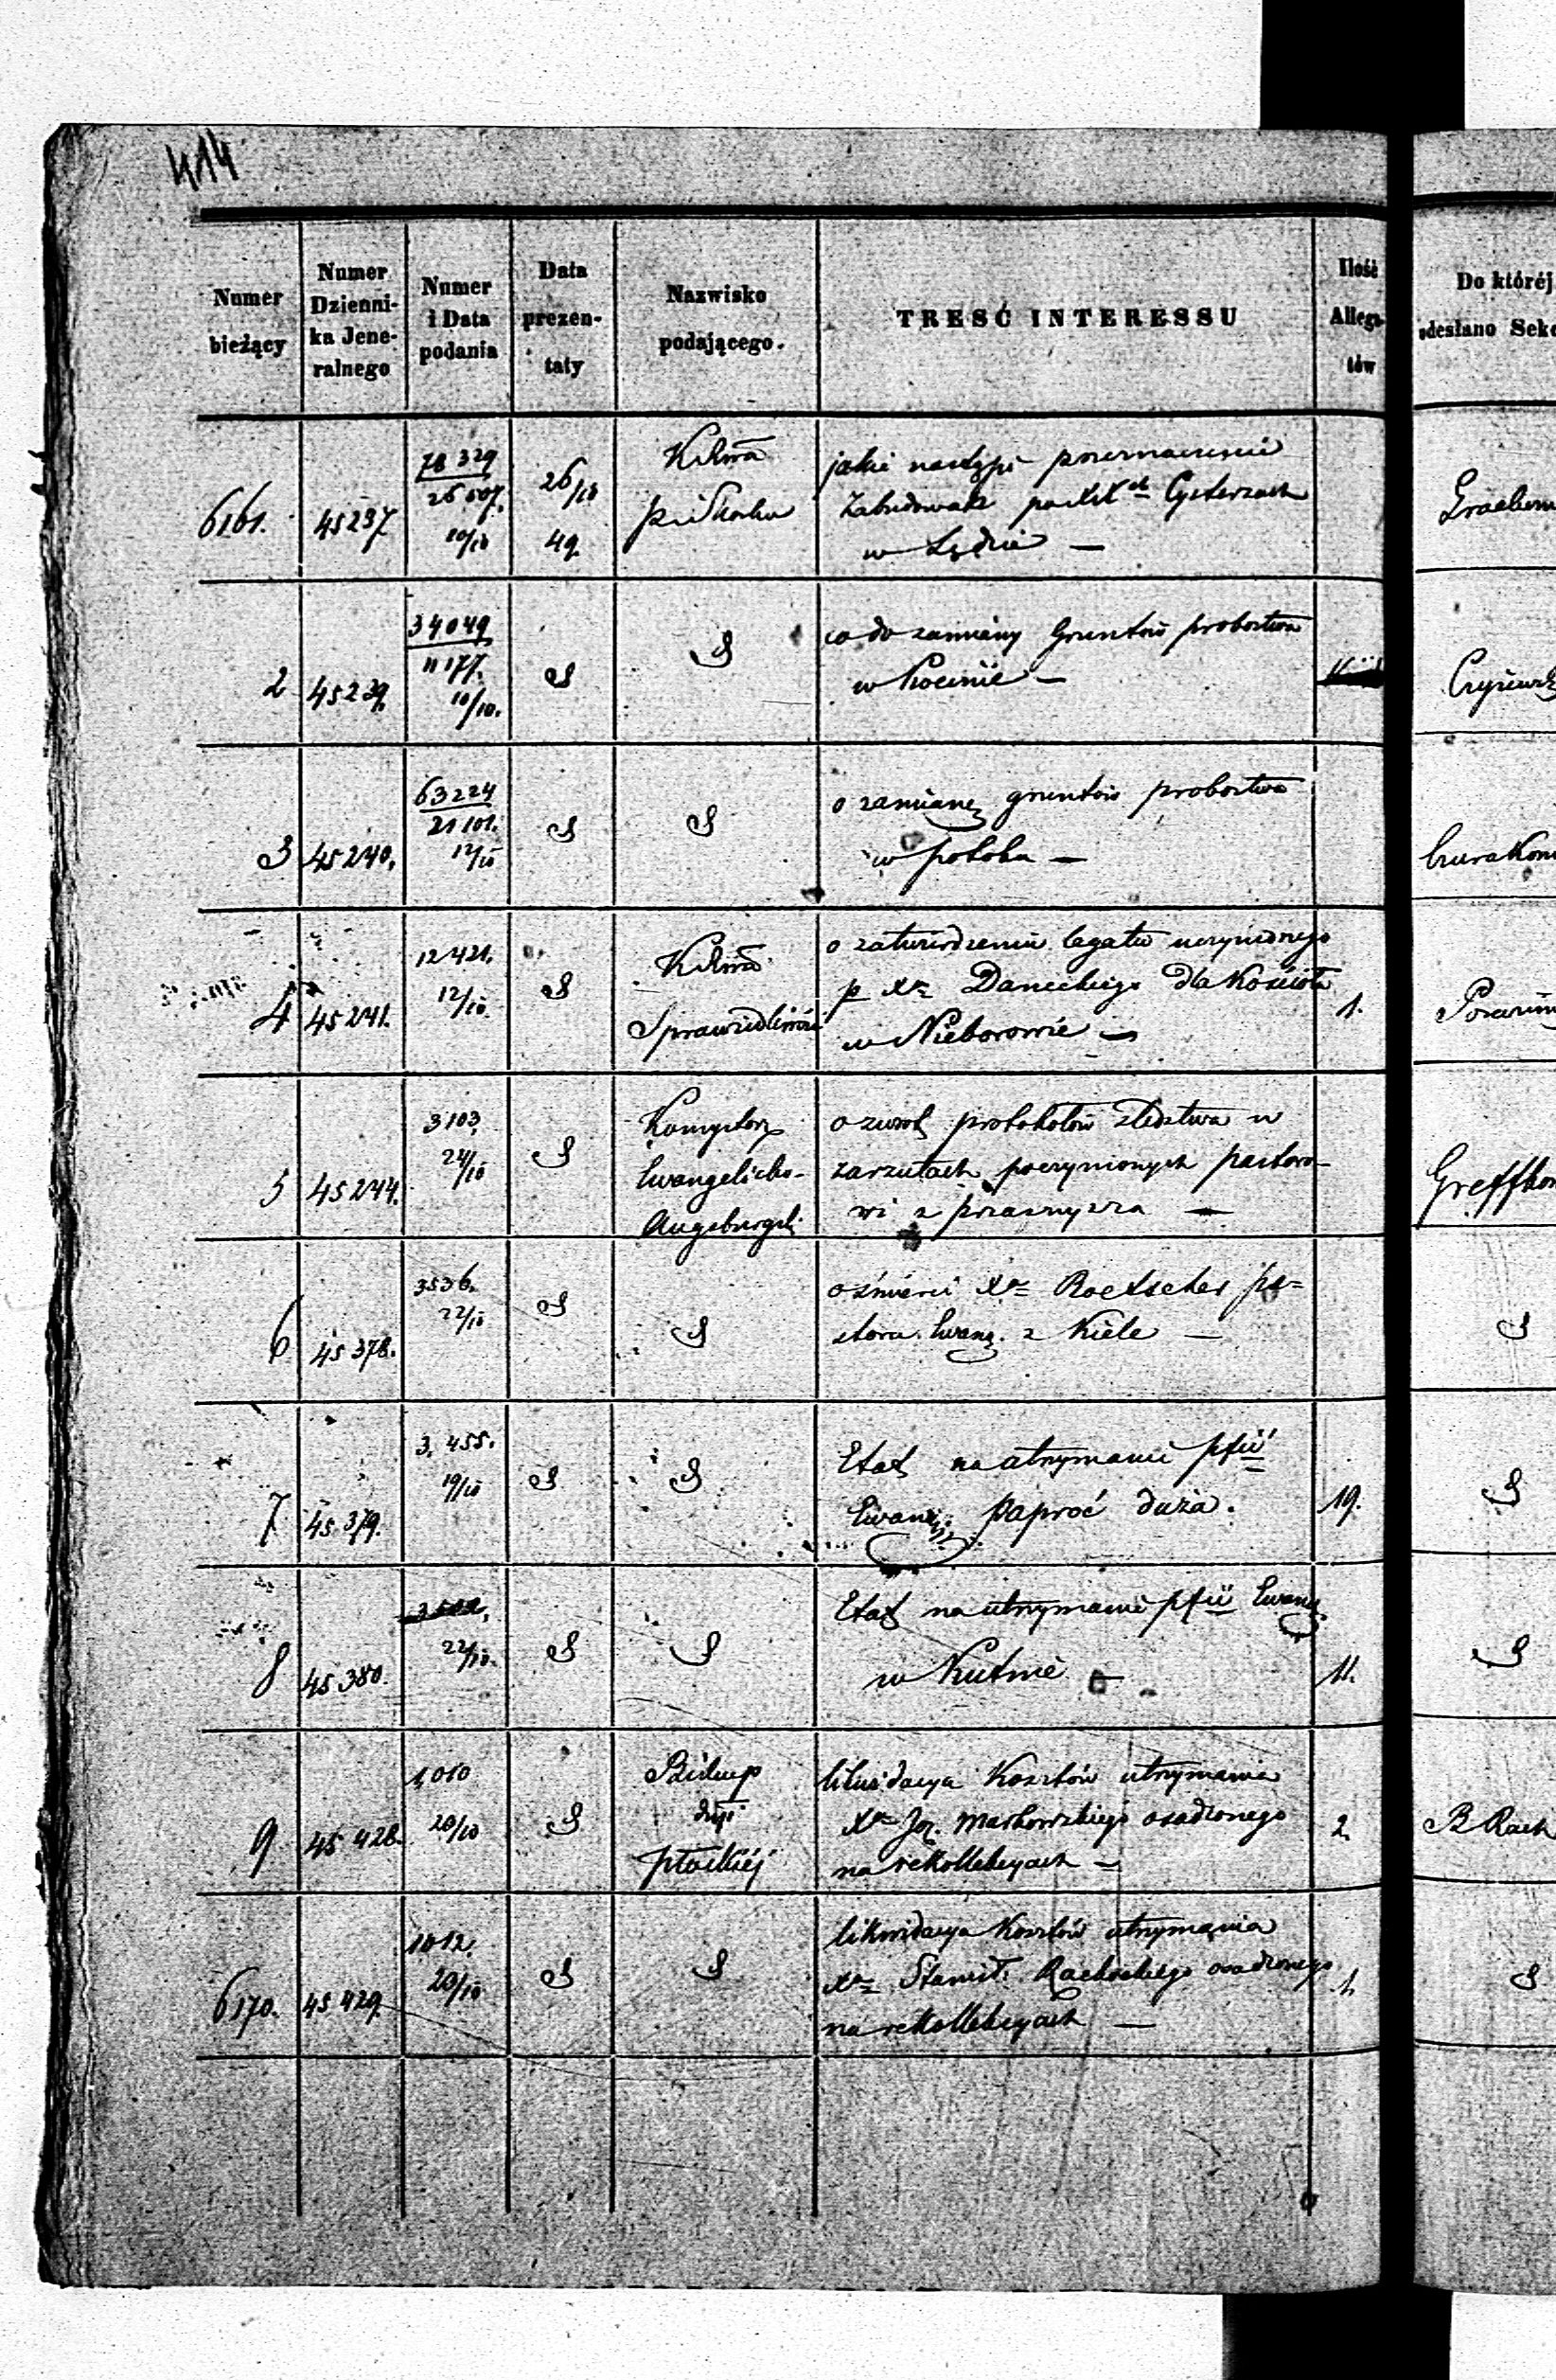 414
Numer bieżący
Numer Dziennika Jeneralnego
Numer i Data podania
Data prezentaty
Nazwisko podającego.
TREŚĆ INTERESSU
Ilość Allegatów
Do któréj
odesłano Sek
6161. 45237 78329 26/10 49.
10/10
jakie nastąpi przeznaczenie
zabudowań po XX Cystersach
w Lądzie —
2 45239. 34049 11177. 10/10. S S
co do zamiany Gruntów probostwa
w Kocinie —
3 45240. 63224 21101. 12/10 S S
o zamianę gruntów probostwa
w
4 45241. 12421. 12/10 S
Sprawiedliwości
o zatwierdzeniu legatu uczynionego
p Xa Daneckiego dla Kościoła
w Nieborowie —
1.
5 45244. 3103, 24/10 S
Konsystorz
Ewangelicko-
Augsburgski
o zwrot protokołów śledztwa w
zarzutach poczynionych pastoro-
wi z Przasnysza —
6 45378. 3536. 22/10 S S
o śmierci Xa Roetscher pa=
stora Ewang. z Kiele — S
7 45379. 3,455. 19/10 S S
Etat na utrzymanie pfii
Ewang. Paproć duża. 19. S
8 45380. 22/10. S S
Etat na utrzymanie pfii Ewang.
w Kutnie — 11. S
9 45428. 1,010 20/10 S
Biskup
dyi
Płockiéj
likwidacya Kosztów utrzymania
Xa Joz. Markowskiego osadzonego
na rekollekcyach — 2
6170. 45429. 1012. 20/10 S S
likwidacya Kosztów utrzymania
Xa Stanisł. osadzonego
na rekollekcyach — 1. S